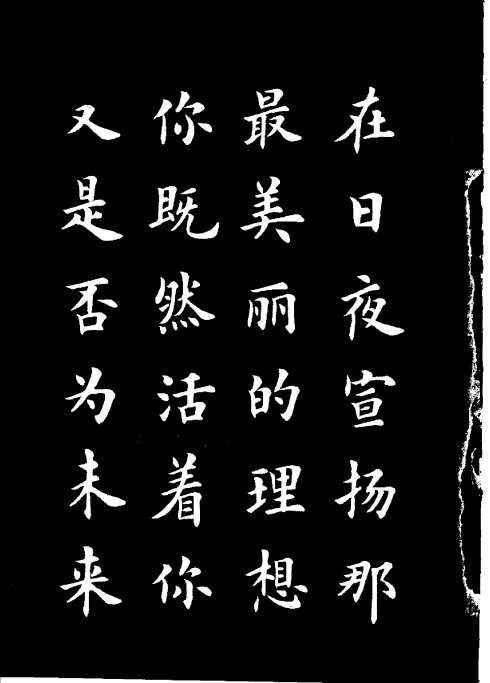 在日夜宣扬那
最美丽的理想
你既然活着你
又是否为未来